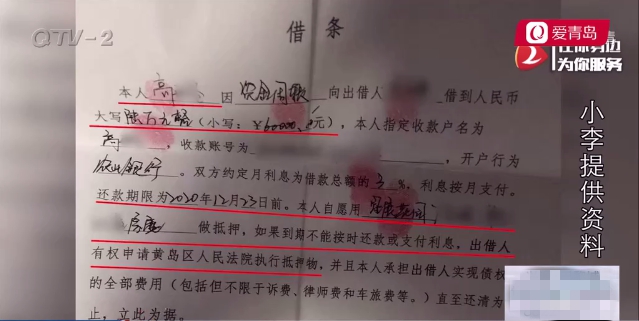 QTV-2
爱青岛
2
在你身边
为你服务
借条
本人高 因资金周转向出借人 借到人民币
大写陆万元整（小写：￥60000.元），本人指定收款户名为
高 ，收款账号为 ，开户行为
农业银行。双方约定月利息为借款总额的3%，利息按月支付。
还款期限为2020年12月23日前。本人自愿用
房产做抵押，如果到期不能按时还款或支付利息，出借人
有权申请黄岛区人民法院执行抵押物，并且本人承担出借人实现债权
的全部费用（包括但不限于诉费、律师费和车旅费等。）直至还清为
止，立此为据。
小李提供资料